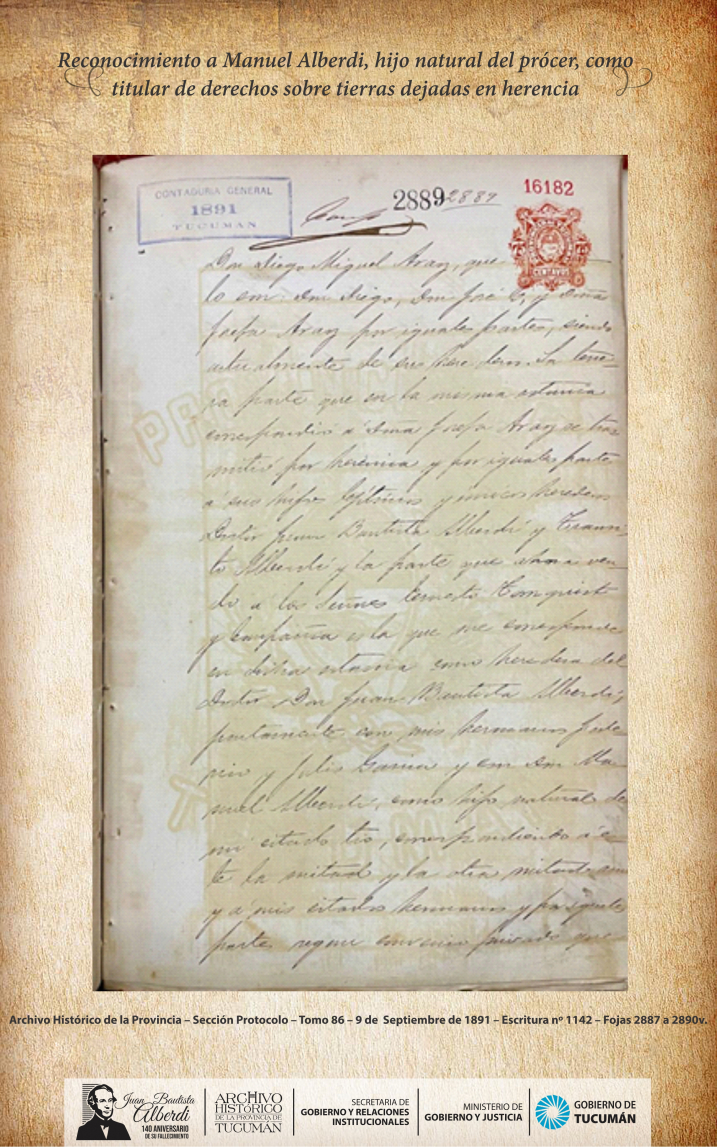 Reconocimiento a Manuel Alberdi, hijo natural del prócer, como
titular de derechos sobre tierras dejadas en herencia
CONTADURIA GENERAL
1891
TUCUMAN
2889 2889
16182
CENTAVOS
Don Diego Miguel Araoz, que
lo son: Don Diego, Don José C, y Doña
Josefa Araoz por iguales partes, siendo
actualmente de sus herederos. La terce-
ra parte que en la misma estancia
correspondió a Doña Josefa Araoz se tras-
mitió por herencia y por iguales partes
a sus hijos lejitimos y únicos herederos
Doctor Juan Bautista Alberdi y Tránsi-
to Alberdi y la parte que ahora ven-
do a los Señores Ernesto Tornquist
y Compañia es la que me corresponde
en dicha estancia como heredera del
Doctor Don Juan Bautista Alberdi,
juntamente con mis hermanos
y Julio Garcia y con Don Ma-
nuel Alberdi, como hijo natural de
mi citado tio, correspondiendo a es-
te la mitad y la otra mitad a mi
y a mis citados hermanos y por iguales
partes segun convenio privado que
Archivo Histórico de la Provincia – Sección Protocolo – Tomo 86 – 9 de Septiembre de 1891 – Escritura nº 1142 – Fojas 2887 a 2890v.
Juan Bautista
Alberdi
140 ANIVERSARIO
DE SU FALLECIMIENTO
ARCHIVO
HISTÓRICO
DE LA PROVINCIA DE
TUCUMÁN
SECRETARIA DE
GOBIERNO Y RELACIONES
INSTITUCIONALES
MINISTERIO DE
GOBIERNO Y JUSTICIA
GOBIERNO DE
TUCUMÁN